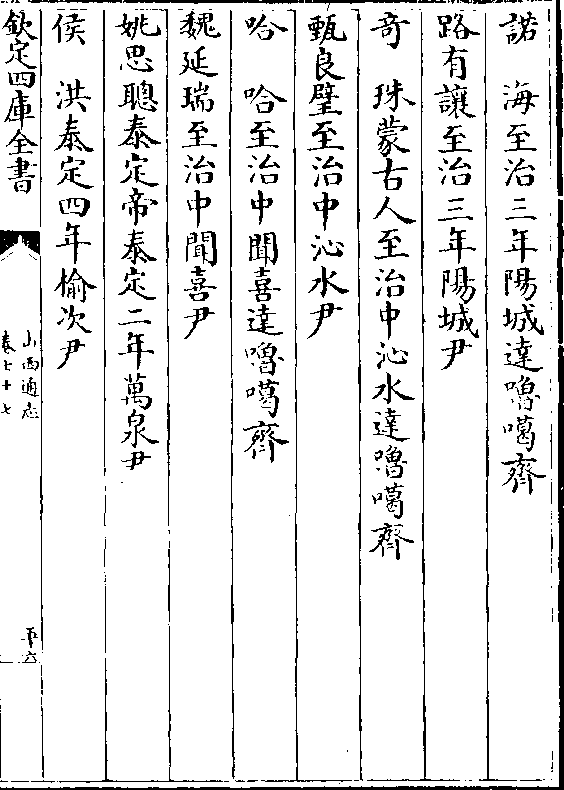 諾　海至治三年陽城達嚕噶齊
路有讓至治三年陽城尹
奇　珠蒙古人至治中沁水達嚕噶齊
甄良璧至治中沁水尹
哈　哈至治中聞喜達嚕噶齊
魏延瑞至治中聞喜尹
姚思聰泰定帝泰定二年萬泉尹
侯　洪泰定四年榆次尹
欽定四庫全書
山西通志
卷七十七